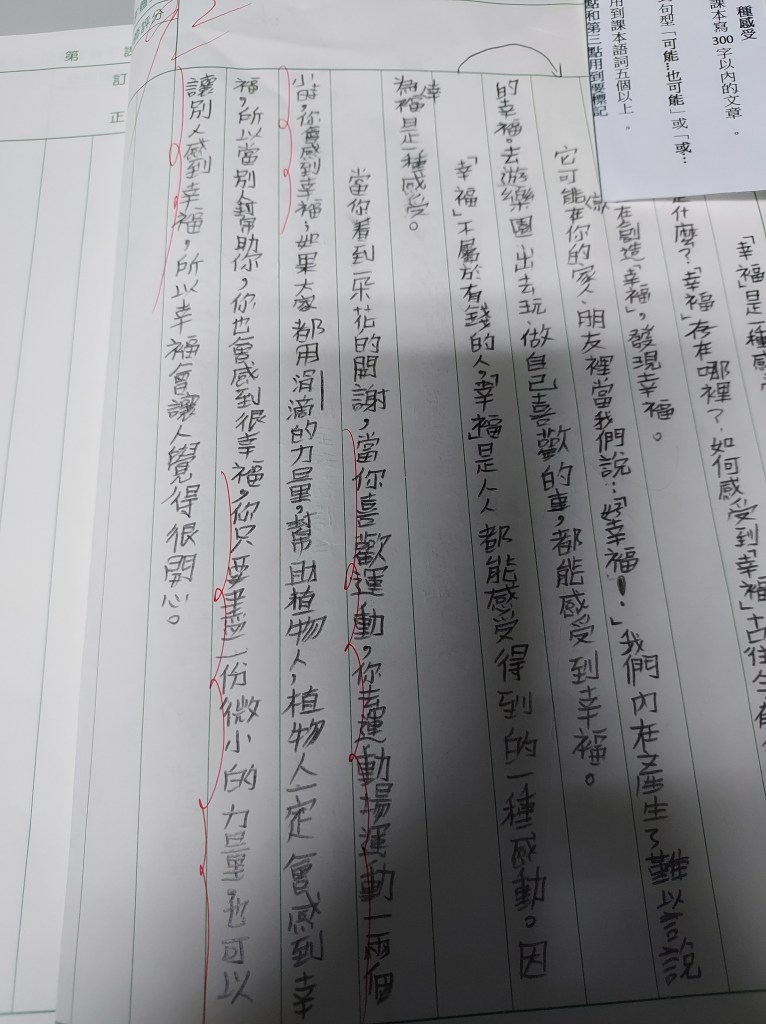 種感受
課本寫 300 字以內的文章 。
句型「可能…也可能」或「或…
用到課本語詞五個以上 。
點和第三點用到要標記
「幸福」是一種感受
是什麼?「幸福」存在哪裡?如何感受到「幸福」古往
在創造「幸福」,發現幸福。
做
它可能在你的家人、朋友裡當我們說:「好幸福!」我們內在產生了難以言說
的幸福。去游樂園、出去玩、做自己喜歡的事,都能感受到幸福。
「幸福」不屬於有錢的人,「幸福」是人人都能感受得到的一種感動。因
為幸福是一種感受。
當你看到一朵花的開謝,當你喜歡運動,你去運動場運動一兩個
小時,你會感到幸福;如果大家都用涓滴的力量,幫助植物人,植物人一定會感到幸
福,所以當別人幫助你,你也會感到很幸福,你只要盡一份微小的力量,也可以
讓別人感到幸福,所以幸福會讓人覺得很開心。
第 課
訂
正